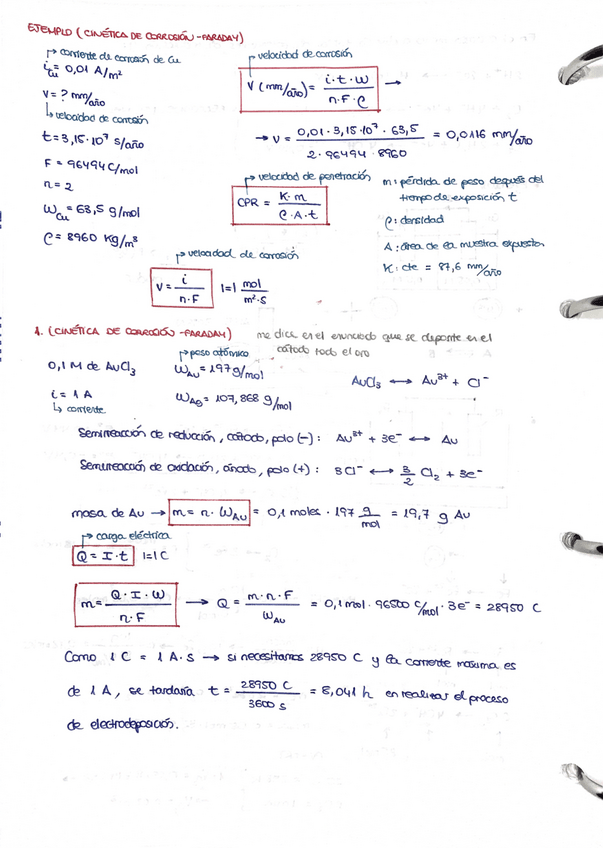 EJEMPLO (CINÉTICA DE CORROSIÓN-FARADAY)
↳ corriente de corrosión de Cu
i_Cu = 0,01 A/m²
V = ? mm/año
↳ velocidad de corrosión
t = 3,15·10⁷ s/año
F = 96494 C/mol
n = 2
W_Cu = 63,5 g/mol
ρ = 8960 Kg/m³
↱ velocidad de corrosión
V (mm/año) = i·t·W / n·F·ρ →
→ V = 0,01 · 3,15·10⁷ · 63,5 / 2 · 96494 · 8960 = 0,0116 mm/año
↱ velocidad de penetración
CPR = K·m / ρ·A·t
m: pérdida de peso después del
tiempo de exposición t
ρ: densidad
A: área de la muestra expuesta
K: cte = 87,6 mm/año
↱ velocidad de corrosión
V = i / n·F   1=1 mol / m²·s
1. (CINÉTICA DE CORROSIÓN-FARADAY) me dice en el enunciado que se deponte en el
cátodo todo el oro
0,1 M de AuCl₃
↱ peso atómico
W_Au = 197 g/mol
AuCl₃ ↔ Au³⁺ + Cl⁻
i = 1 A
↳ corriente
W_Ag = 107,868 g/mol
Semirreacción de reducción, cátodo, polo (-): Au³⁺ + 3e⁻ ↔ Au
Semirreacción de oxidación, ánodo, polo (+): 3Cl⁻ ↔ 3/2 Cl₂ + 3e⁻
masa de Au → m = n · W_Au = 0,1 moles · 197 g/mol = 19,7 g Au
↱ carga eléctrica
Q = I·t   1=1 C
m = Q·I·W / n·F → Q = m·n·F / W_Au = 0,1 mol · 96500 C/mol · 3e⁻ = 28950 C
Como 1 C = 1 A·s → si necesitamos 28950 C y la corriente máxima es
de 1 A, se tardaría t = 28950 C / 3600 s = 8,041 h en realizar el proceso
de electrodeposición.